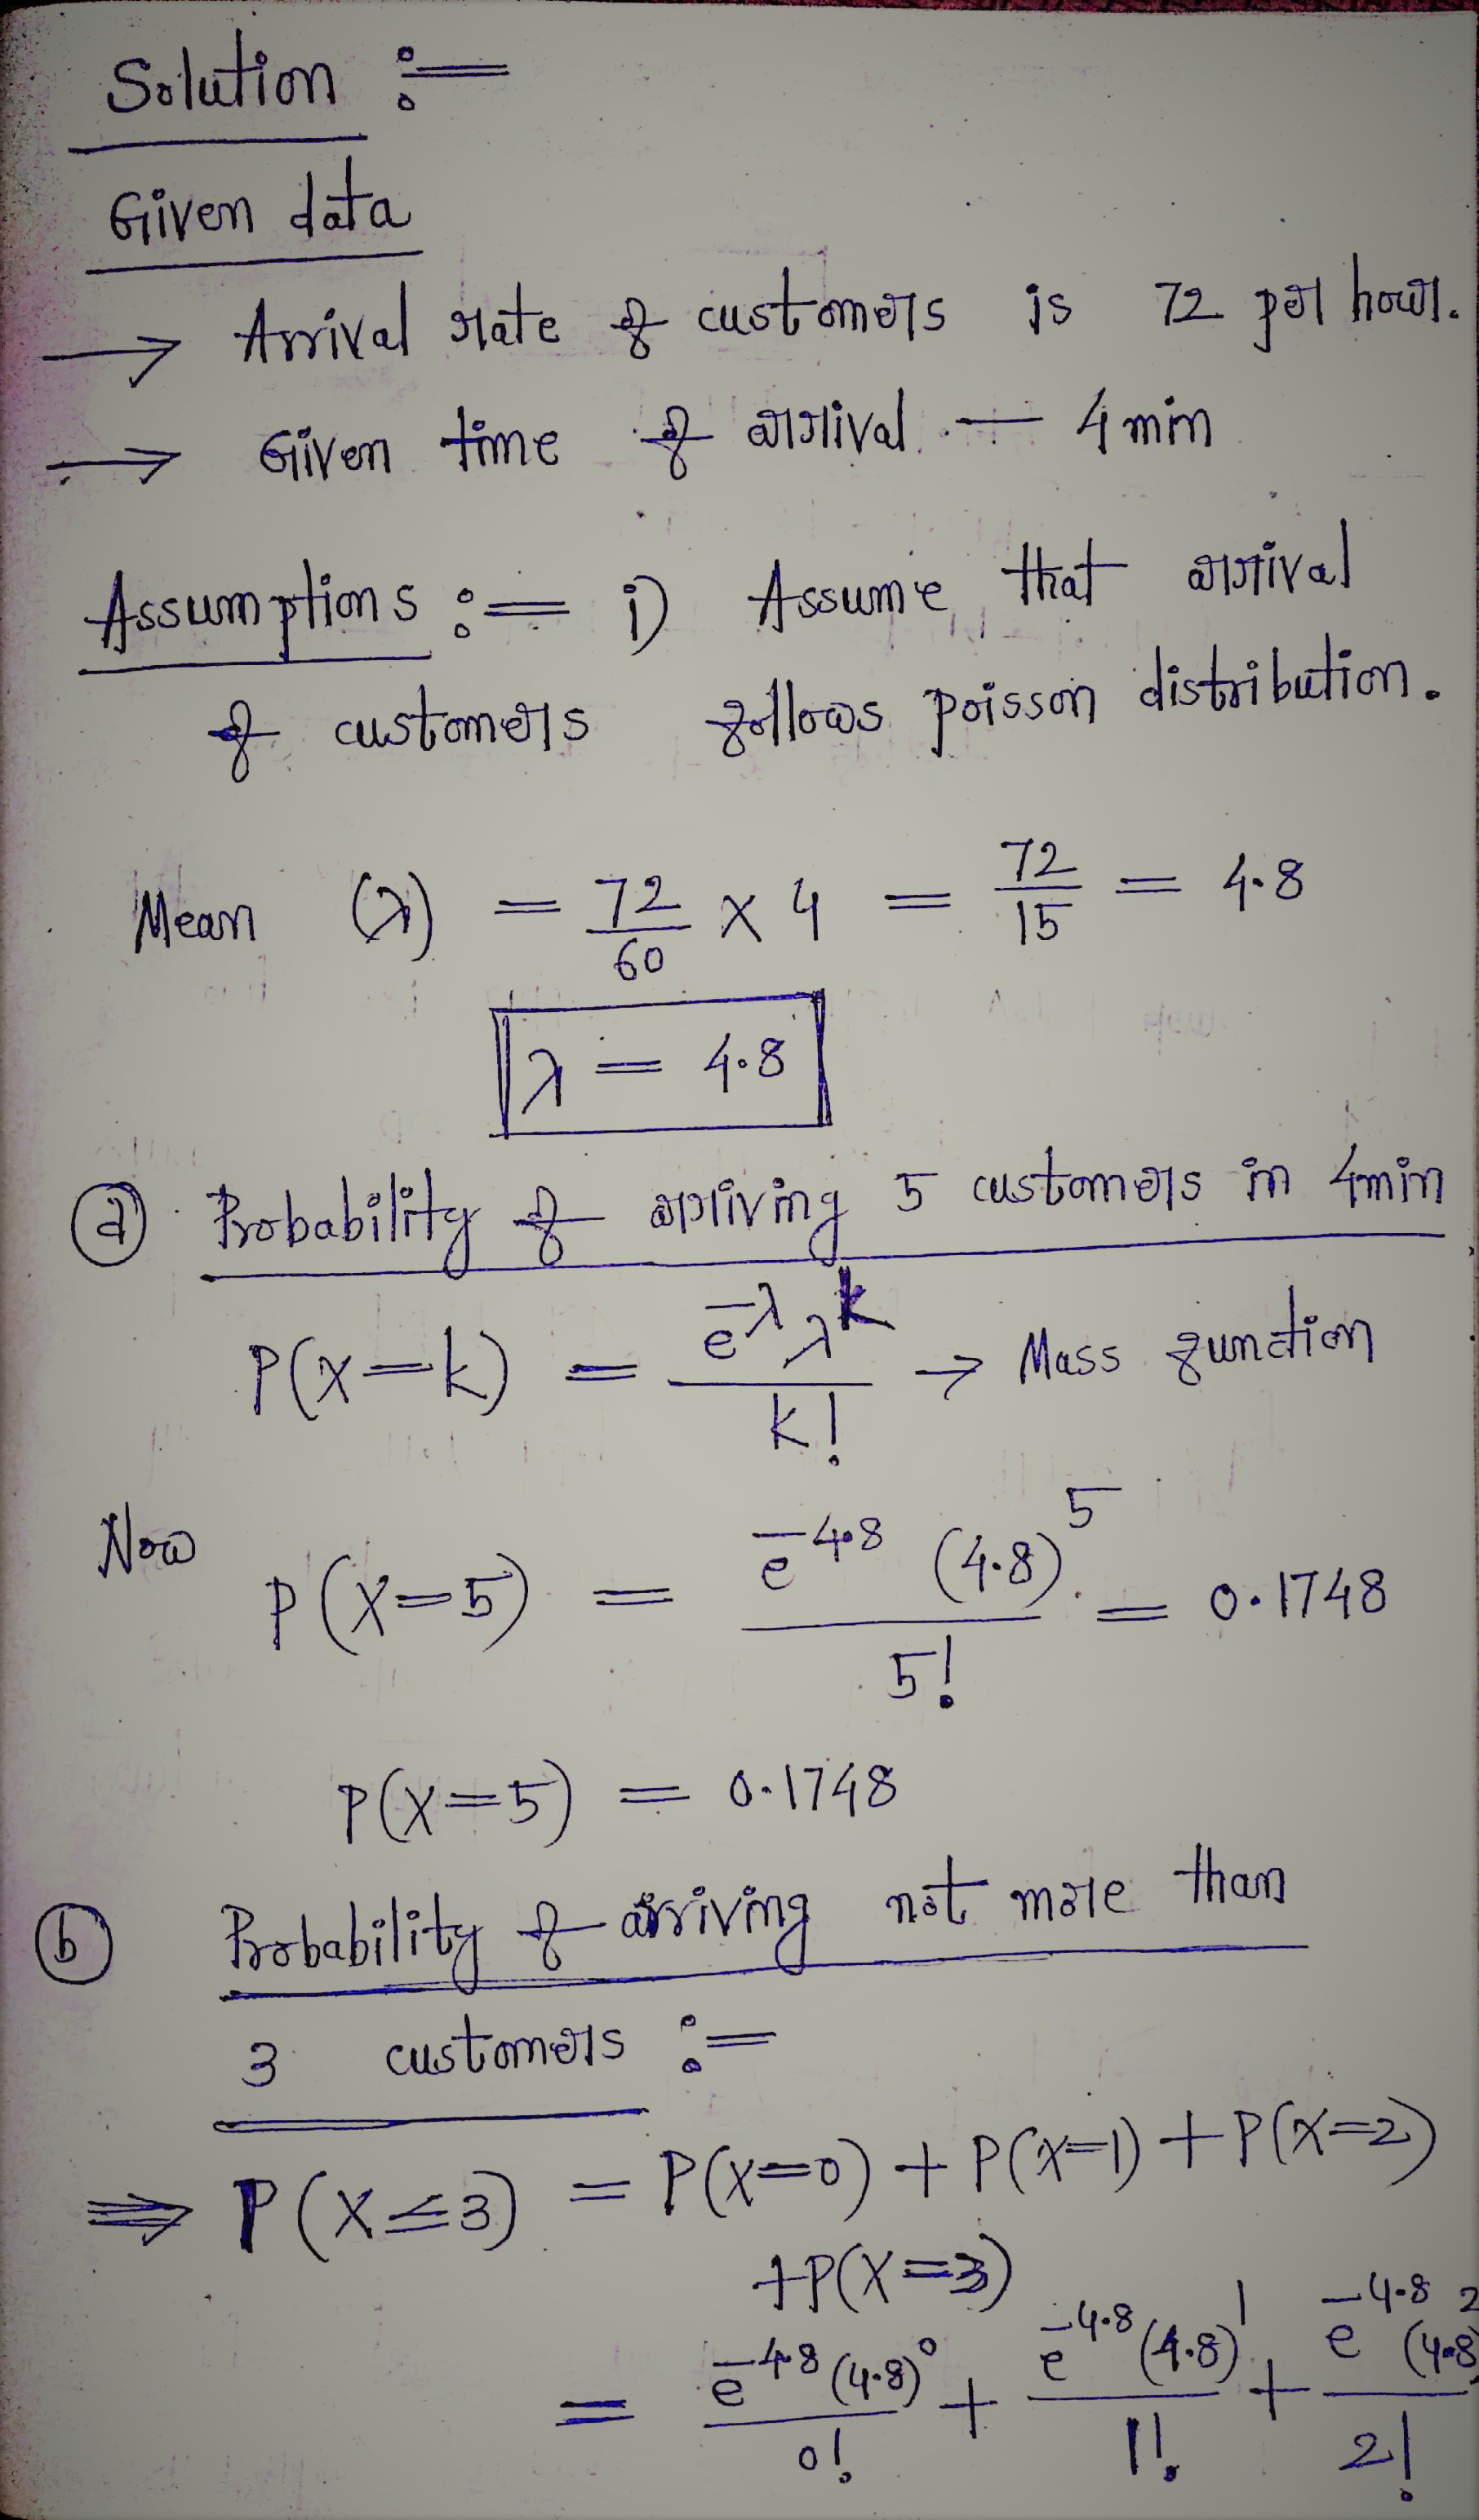 Solution :=
Given data
→ Arrival rate of customers is 72 per hour.
→ Given time of arrival — 4 min
Assumptions := i) Assume that arrival
of customers follows poisson distribution.
Mean (λ) = 72/60 × 4 = 72/15 = 4.8
λ = 4.8
(a) Probability of arriving 5 customers in 4min
P(X=k) = e^-λ λ^k / k! → Mass function
Now P(X=5) = e^-4.8 (4.8)^5 / 5! = 0.1748
P(X=5) = 0.1748
(b) Probability of arriving not more than
3 customers :=
⇒ P(X≤3) = P(X=0) + P(X=1) + P(X=2)
+P(X=3)
= e^-4.8 (4.8)^0 / 0! + e^-4.8 (4.8)^1 / 1! + e^-4.8 (4.8)^2 / 2!